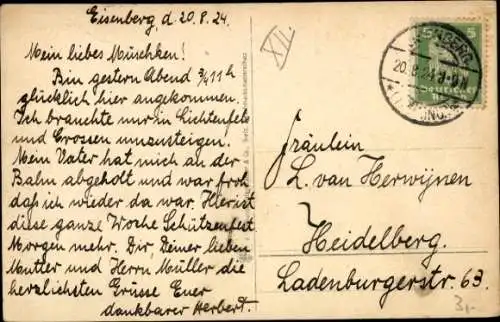 Eisenberg, d. 20.8.24.
Mein liebes Muschken!
Bin gestern Abend 3/4 11 h
glücklich hier angekommen.
Ich brauchte nur in Lichtenfels
und Crossen umzusteigen.
Mein Vater hat mich an der
Bahn abgeholt und war froh
daß ich wieder da war. Hier ist
diese ganze Woche Schützenfest
Morgen mehr. Dir, Deiner lieben
Mutter und Herrn Müller die
herzlichsten Grüsse Euer
dankbarer Herbert.
XII.
5 5
20.8.24.
Fräulein
L. van Herwijnen
Heidelberg.
Ladenburgerstr. 63.
3,-